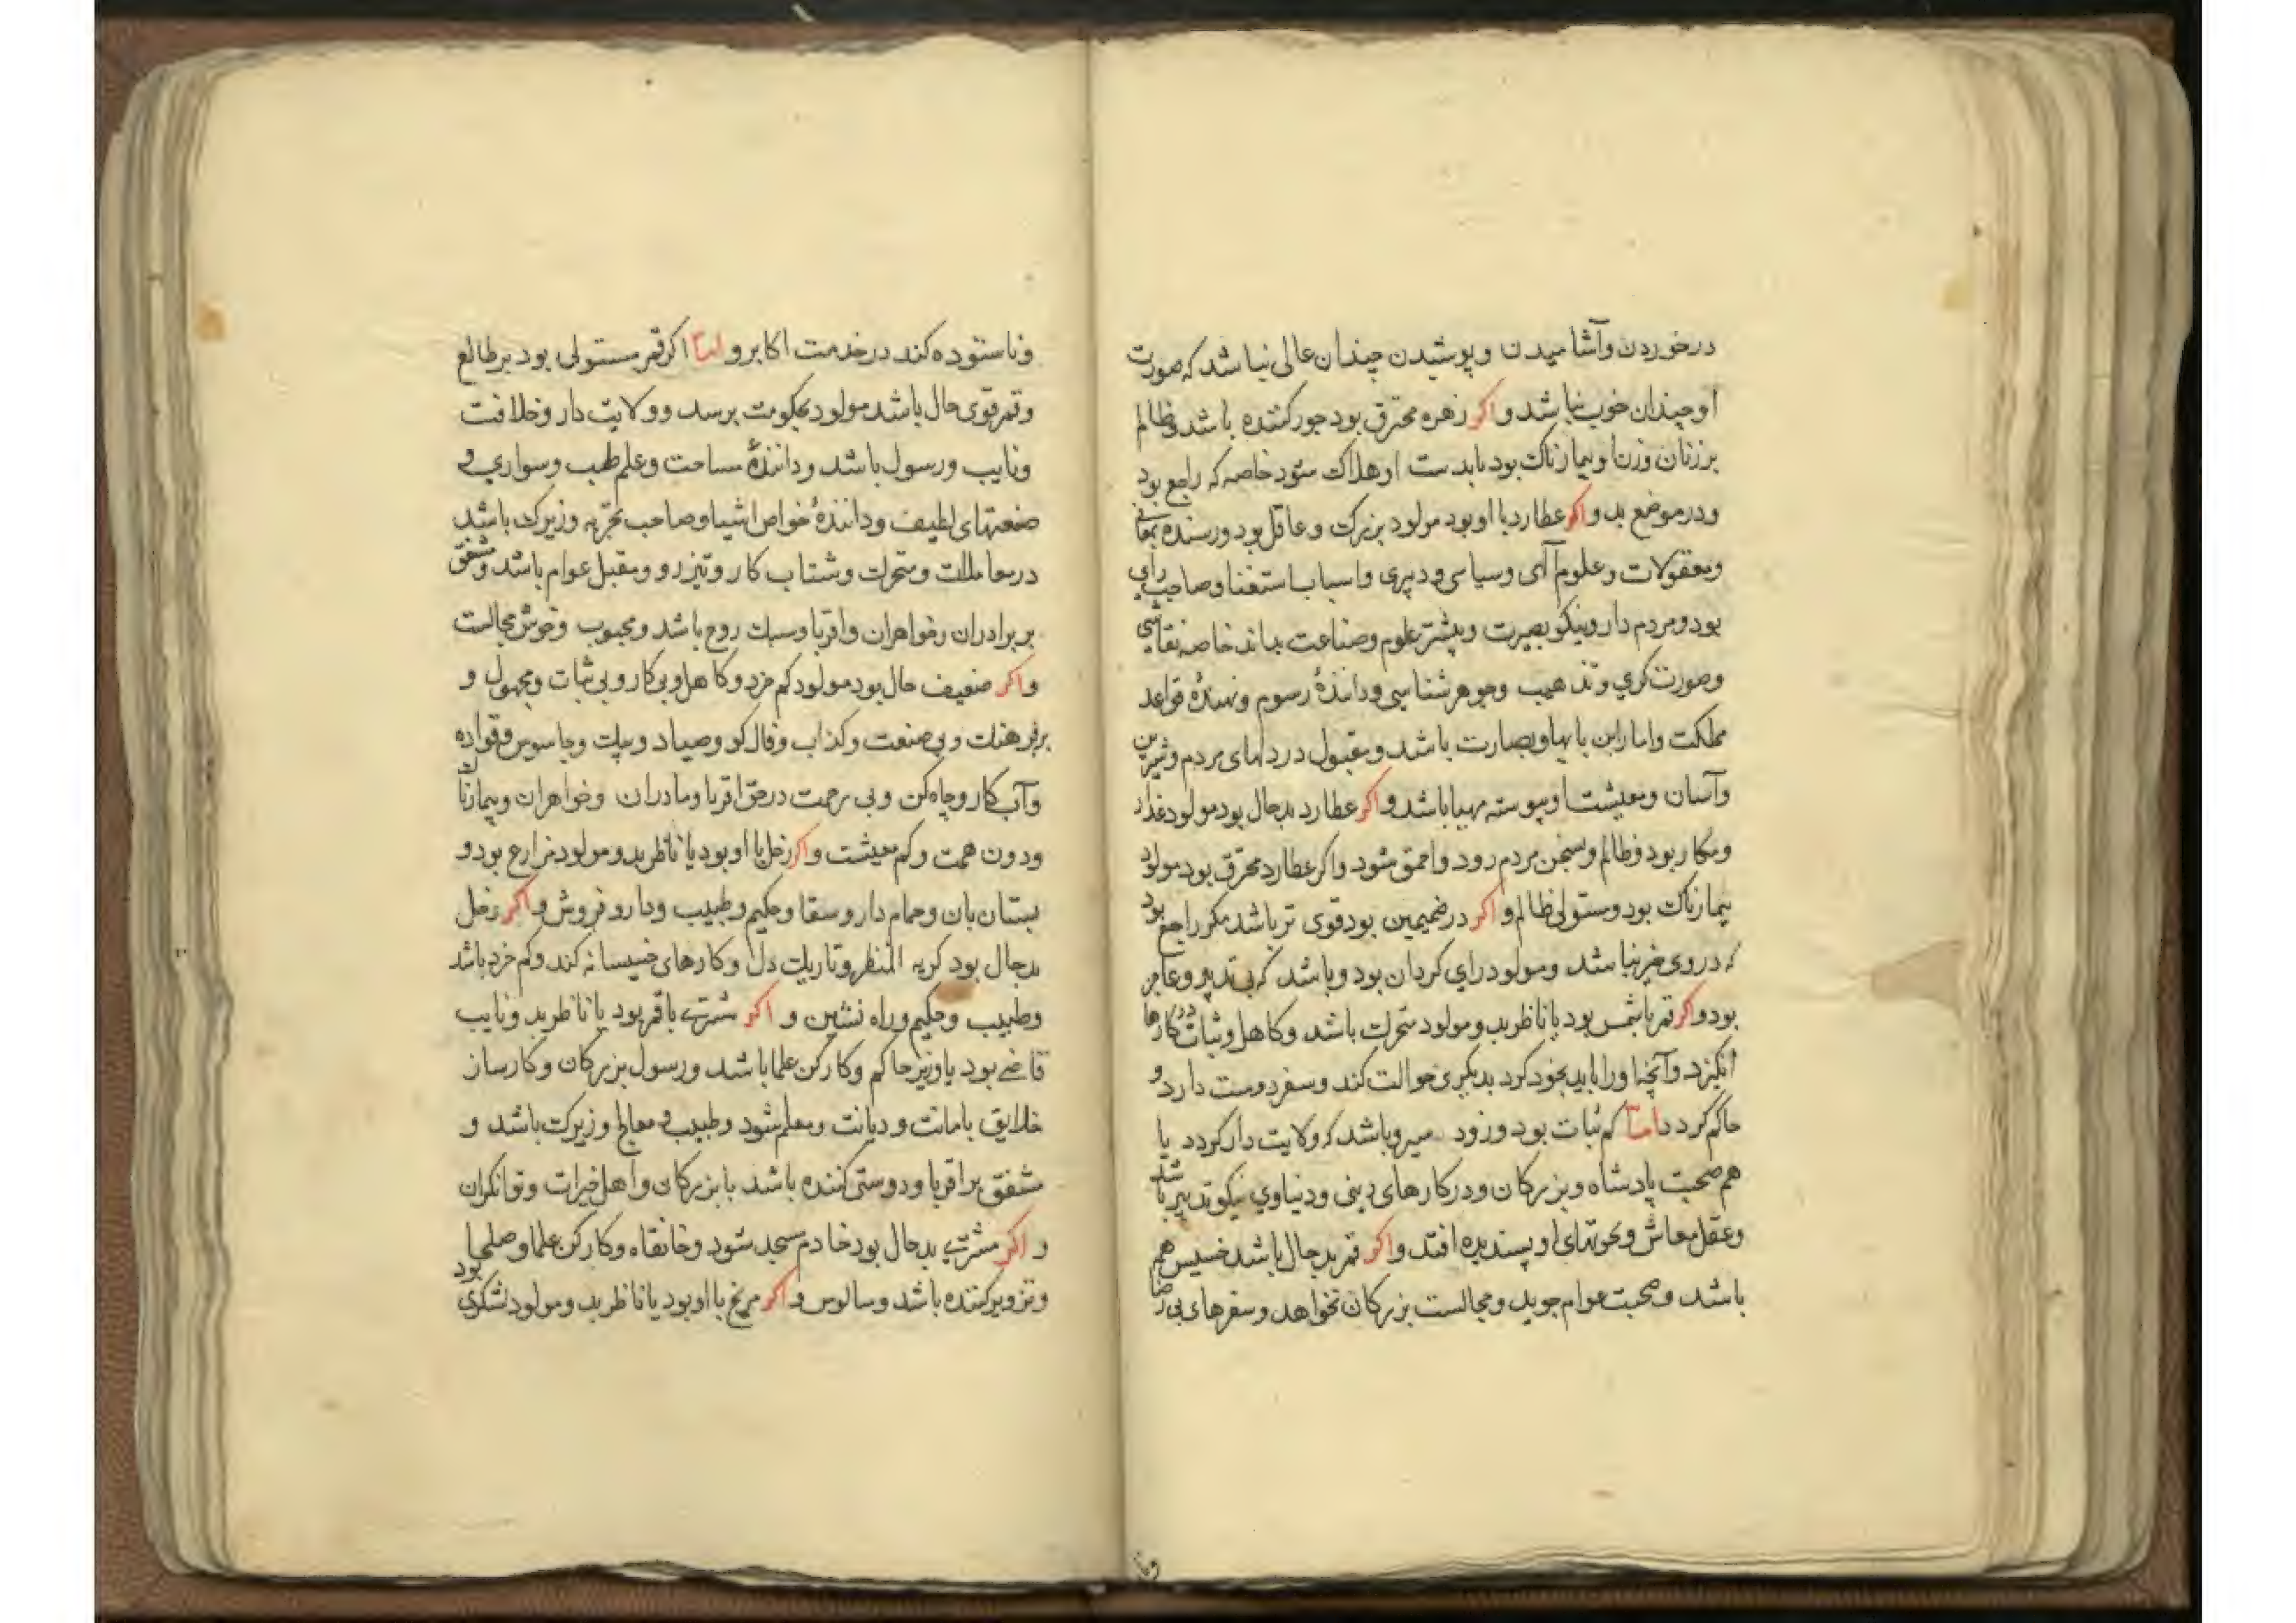 در خوردن و آشامیدن و پوشیدن چندان عالی نباشد که صورت
او چندان خوب نباشد و اکر زهره محترق بود جور کننده باشد و ظالم
بر زنان و زن او بیمارناک بود یا بدست او هلاک شود خاصه که راجع بود
و در موضع بد و اکر عطارد با او بود مولود بزرک و عاقل بود و رسنده بمعانی
و معقولات و علوم آلهی و سیاسی و دبیری و اسباب استغنا و صاحب رای
بود و مردم دار و نیکو بصیرت و بیشتر علوم و صناعت بداند خاصه نقاشی
و صورت کری و تذهیب و جوهر شناسی و دانندهٔ رسوم و نهندهٔ قواعد
مملکت و اما را بن با بها و بصارت باشد و مقبول در دلهای مردم و شیرین
و آسان و معیشت او پیوسته مهیا باشد و اکر عطارد بدحال بود مولود غدار
و مکار بود و ظالم و بسخن مردم رود و احمق شود و اکر عطارد محترق بود مولود
بیمارناک بود و مستولی ظالم و اکر در ضمیمین بود قوی تر باشد مکر راجع بود
که در وی خیر نباشد و مولود رای کردان بود و باشد که بی تدبیر و عاجز
بود و اکر قمر با شمس بود یا ناظر بد و مولود متحرک باشد و کاهل و ثبات در کارها
انکیزد و آنچه او را باید بخود کرد بدیکری حوالت کند و سفر دوست دارد و
حاکم کردد اما کم ثبات بود و زود میرو باشد که ولایت دار کردد یا
هم صحبت پادشاه و بزرکان و در کارهای دینی و دنیاوی نیکو تدبیر باشد
و عقل معاش و نحوتهای او پسندیده افتد و اکر قمر بدحال باشد خسیس هم
باشد و صحبت عوام جوید و مجالست بزرکان نخواهد و سفرهای بی رضا
و نا
و ناستوده کند در خدمت اکابر و اما اکر قمر مستولی بود بر طالع
و قمر قوی حال باشد مولود بحکومت برسد و ولایت دار و خلافت
و نایب و رسول باشد و دانندهٔ مساحت و علم طب و سواری و
صنعتهای لطیف و دانندهٔ خواص اشیا و صاحب تجربه و زیرک باشد
در معاملات و متحرک و شتاب کار و تیز رو و مقبل عوام باشد و مشفق
بر برادران و خواهران و اقربا و سبک روح باشد و محبوب و خوش مجالست
و اکر ضعیف حال بود مولود کم خرد و کاهل و بی کار و بی ثبات و مجهول و
بی فرهنک و بی صنعت و کذاب و فال کو و صیاد و پیک و جاسوس و قواده
و آب کار و چاه کن و بی رحمت در حق اقربا و مادران و خواهران و بیمارناک
و دون همت و کم معیشت و اکر زحل با او بود یا ناظر بد و مولود مزارع بود و
بستان بان و حمام دار و سقا و حکیم و طبیب و دارو فروش و اکر زحل
بدحال بود کریه المنظر و تاریک دل و کارهای خسیسانه کند و کم خرد باشد
و طبیب و حکیم و راه نشین و اکر مشتری با قمر بود یا ناظر بد و نایب
قاضی بود یا وزیر حاکم و کارکن علما باشد و رسول بزرکان و کارساز
خلایق با مانت و دیانت و معلم شود و طبیب و معالج و زیرک باشد و
مشفق بر اقربا و دوستی کننده باشد با بزرکان و اهل خیرات و توانکران
و اکر مشتری بدحال بود خادم مسجد شود و خانقاه و کارکن علما و صلحا بود
و تزویر کننده باشد و سالوس و اکر مریخ با او بود یا ناظر بد و مولود لشکری